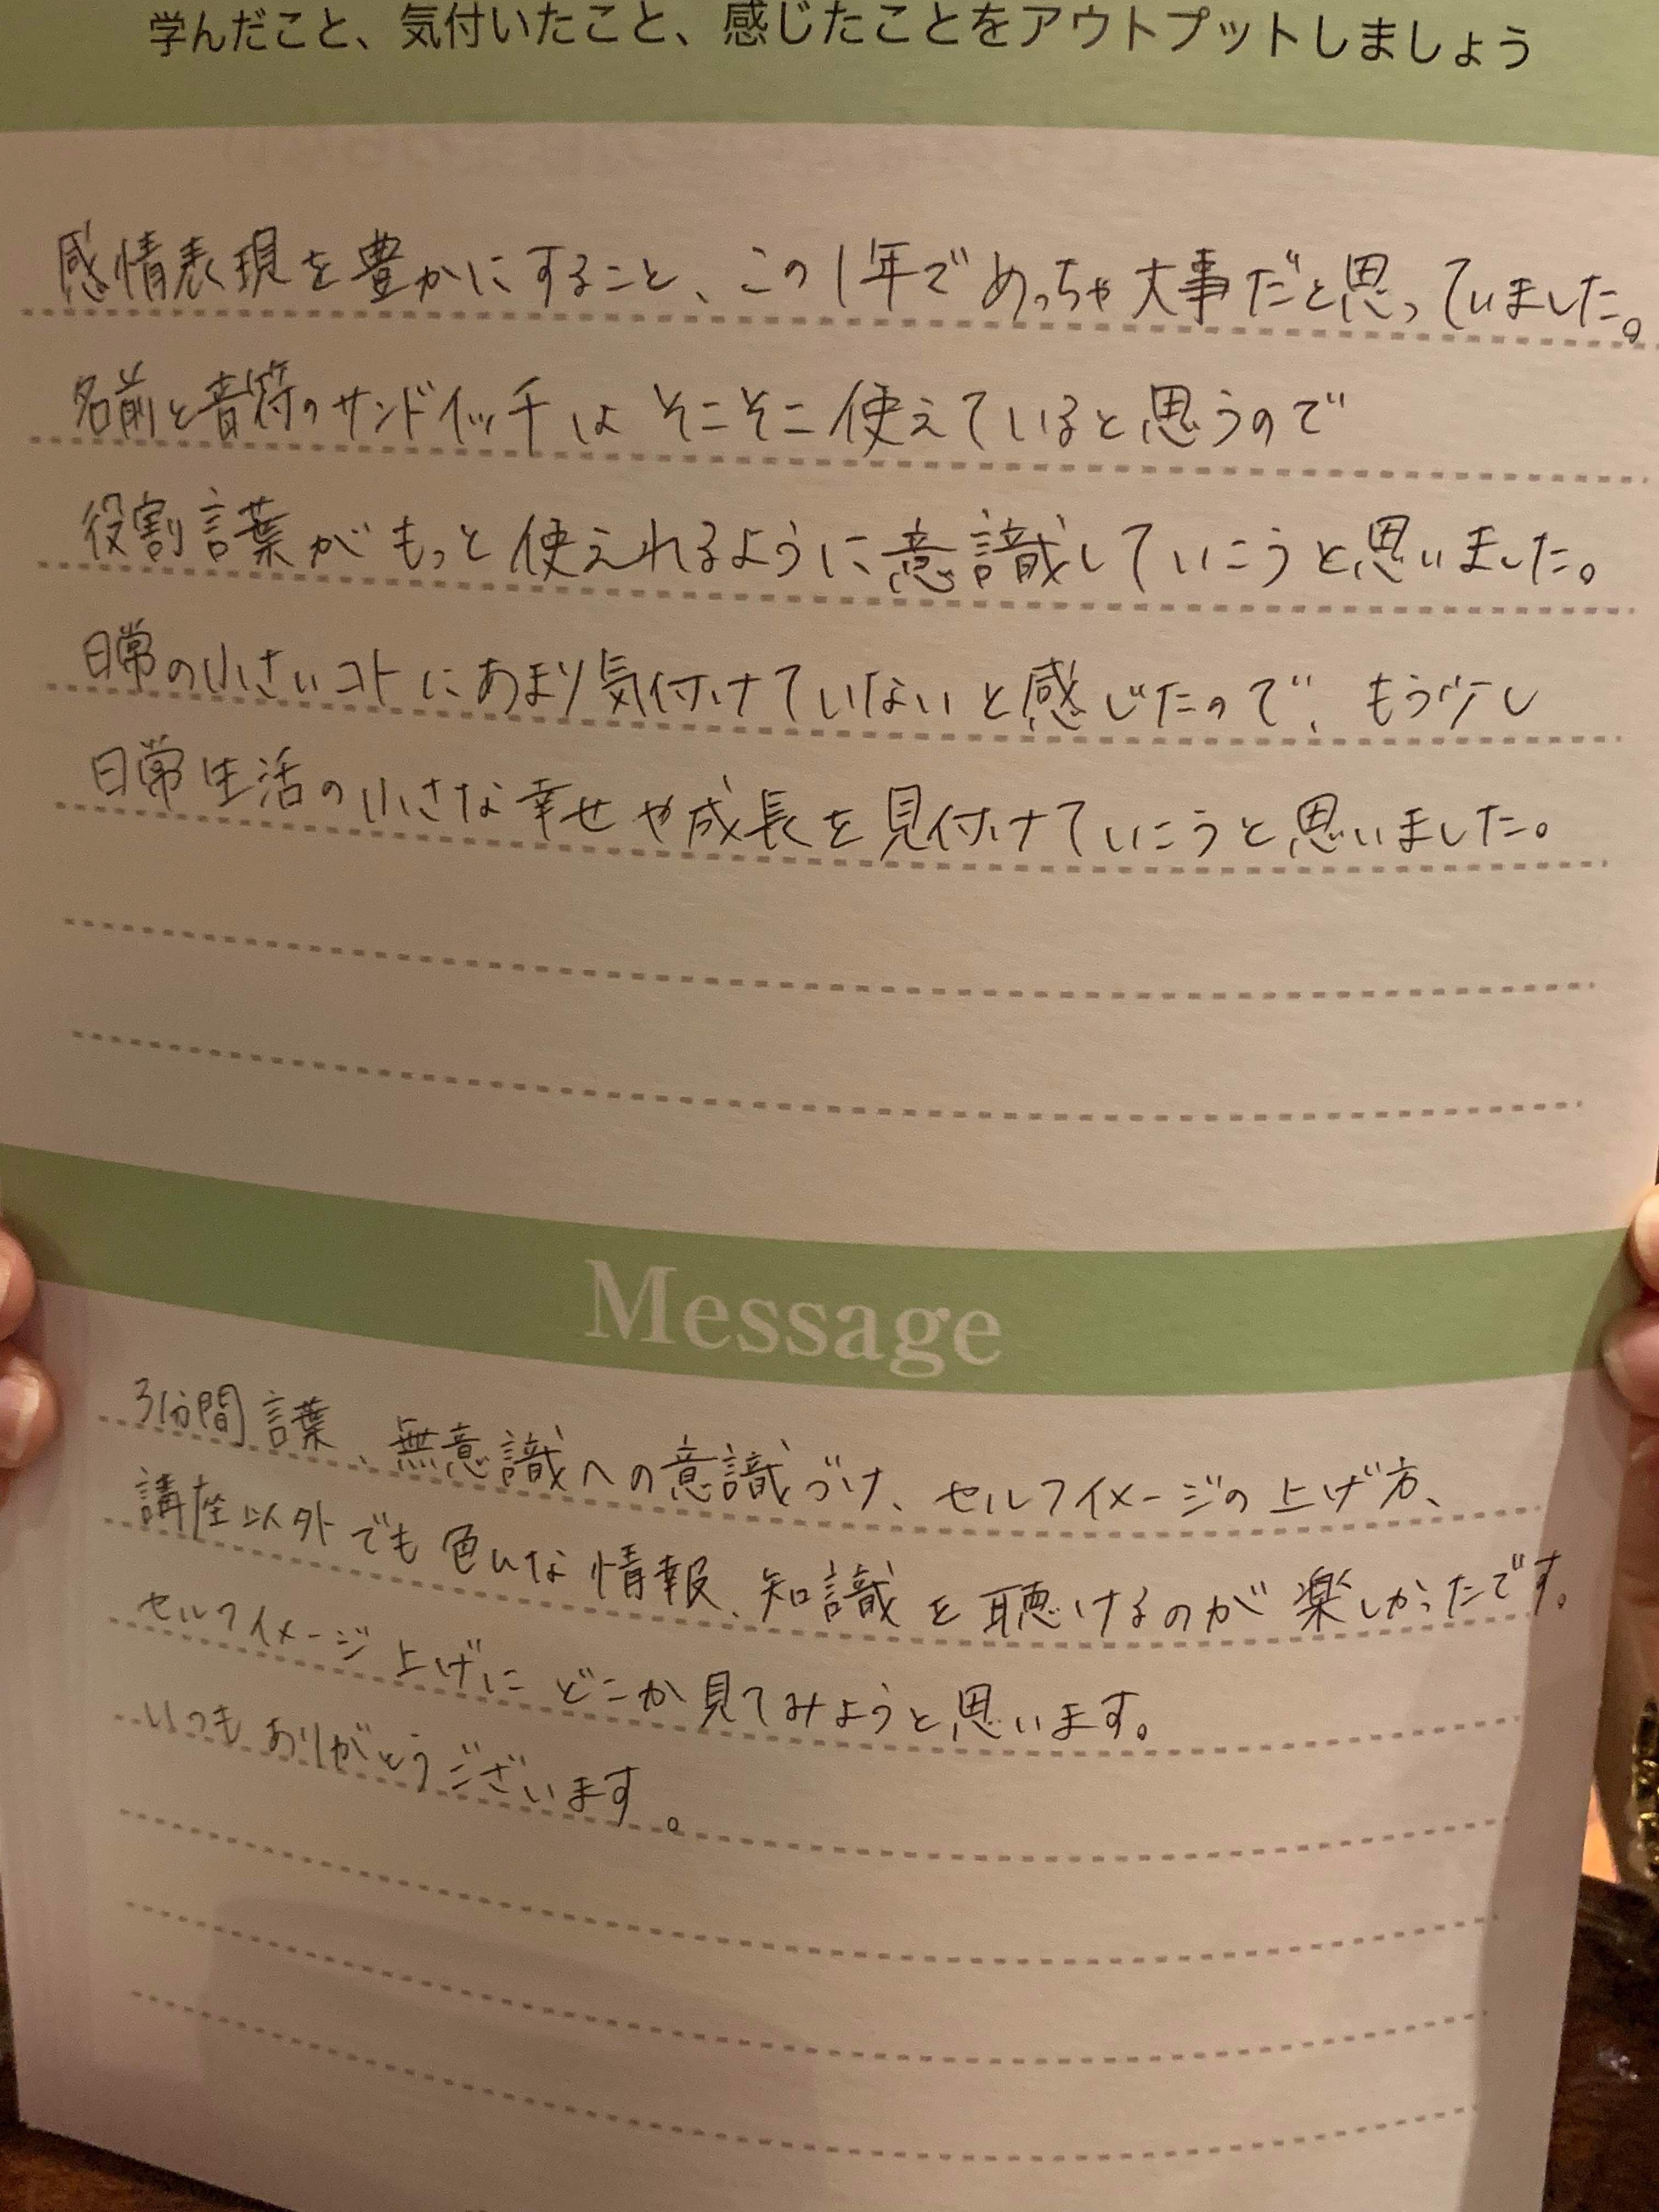 学んだこと、気付いたこと、感じたことをアウトプットしましょう
感情表現を豊かにすること、この1年でめっちゃ大事だと思っていました。
名前と音符のサンドイッチはそこそこ使えていると思うので
役割言葉がもっと使えれるように意識していこうと思いました。
日常の小さいコトにあまり気付けていないと感じたので、もう少し
日常生活の小さな幸せや成長を見付けていこうと思いました。
Message
3分間言葉、無意識への意識づけ、セルフイメージの上げ方、
講座以外でも色んな情報、知識を聴けるのが楽しかったです。
セルフイメージ上げにどこか見てみようと思います。
いつもありがとうございます。